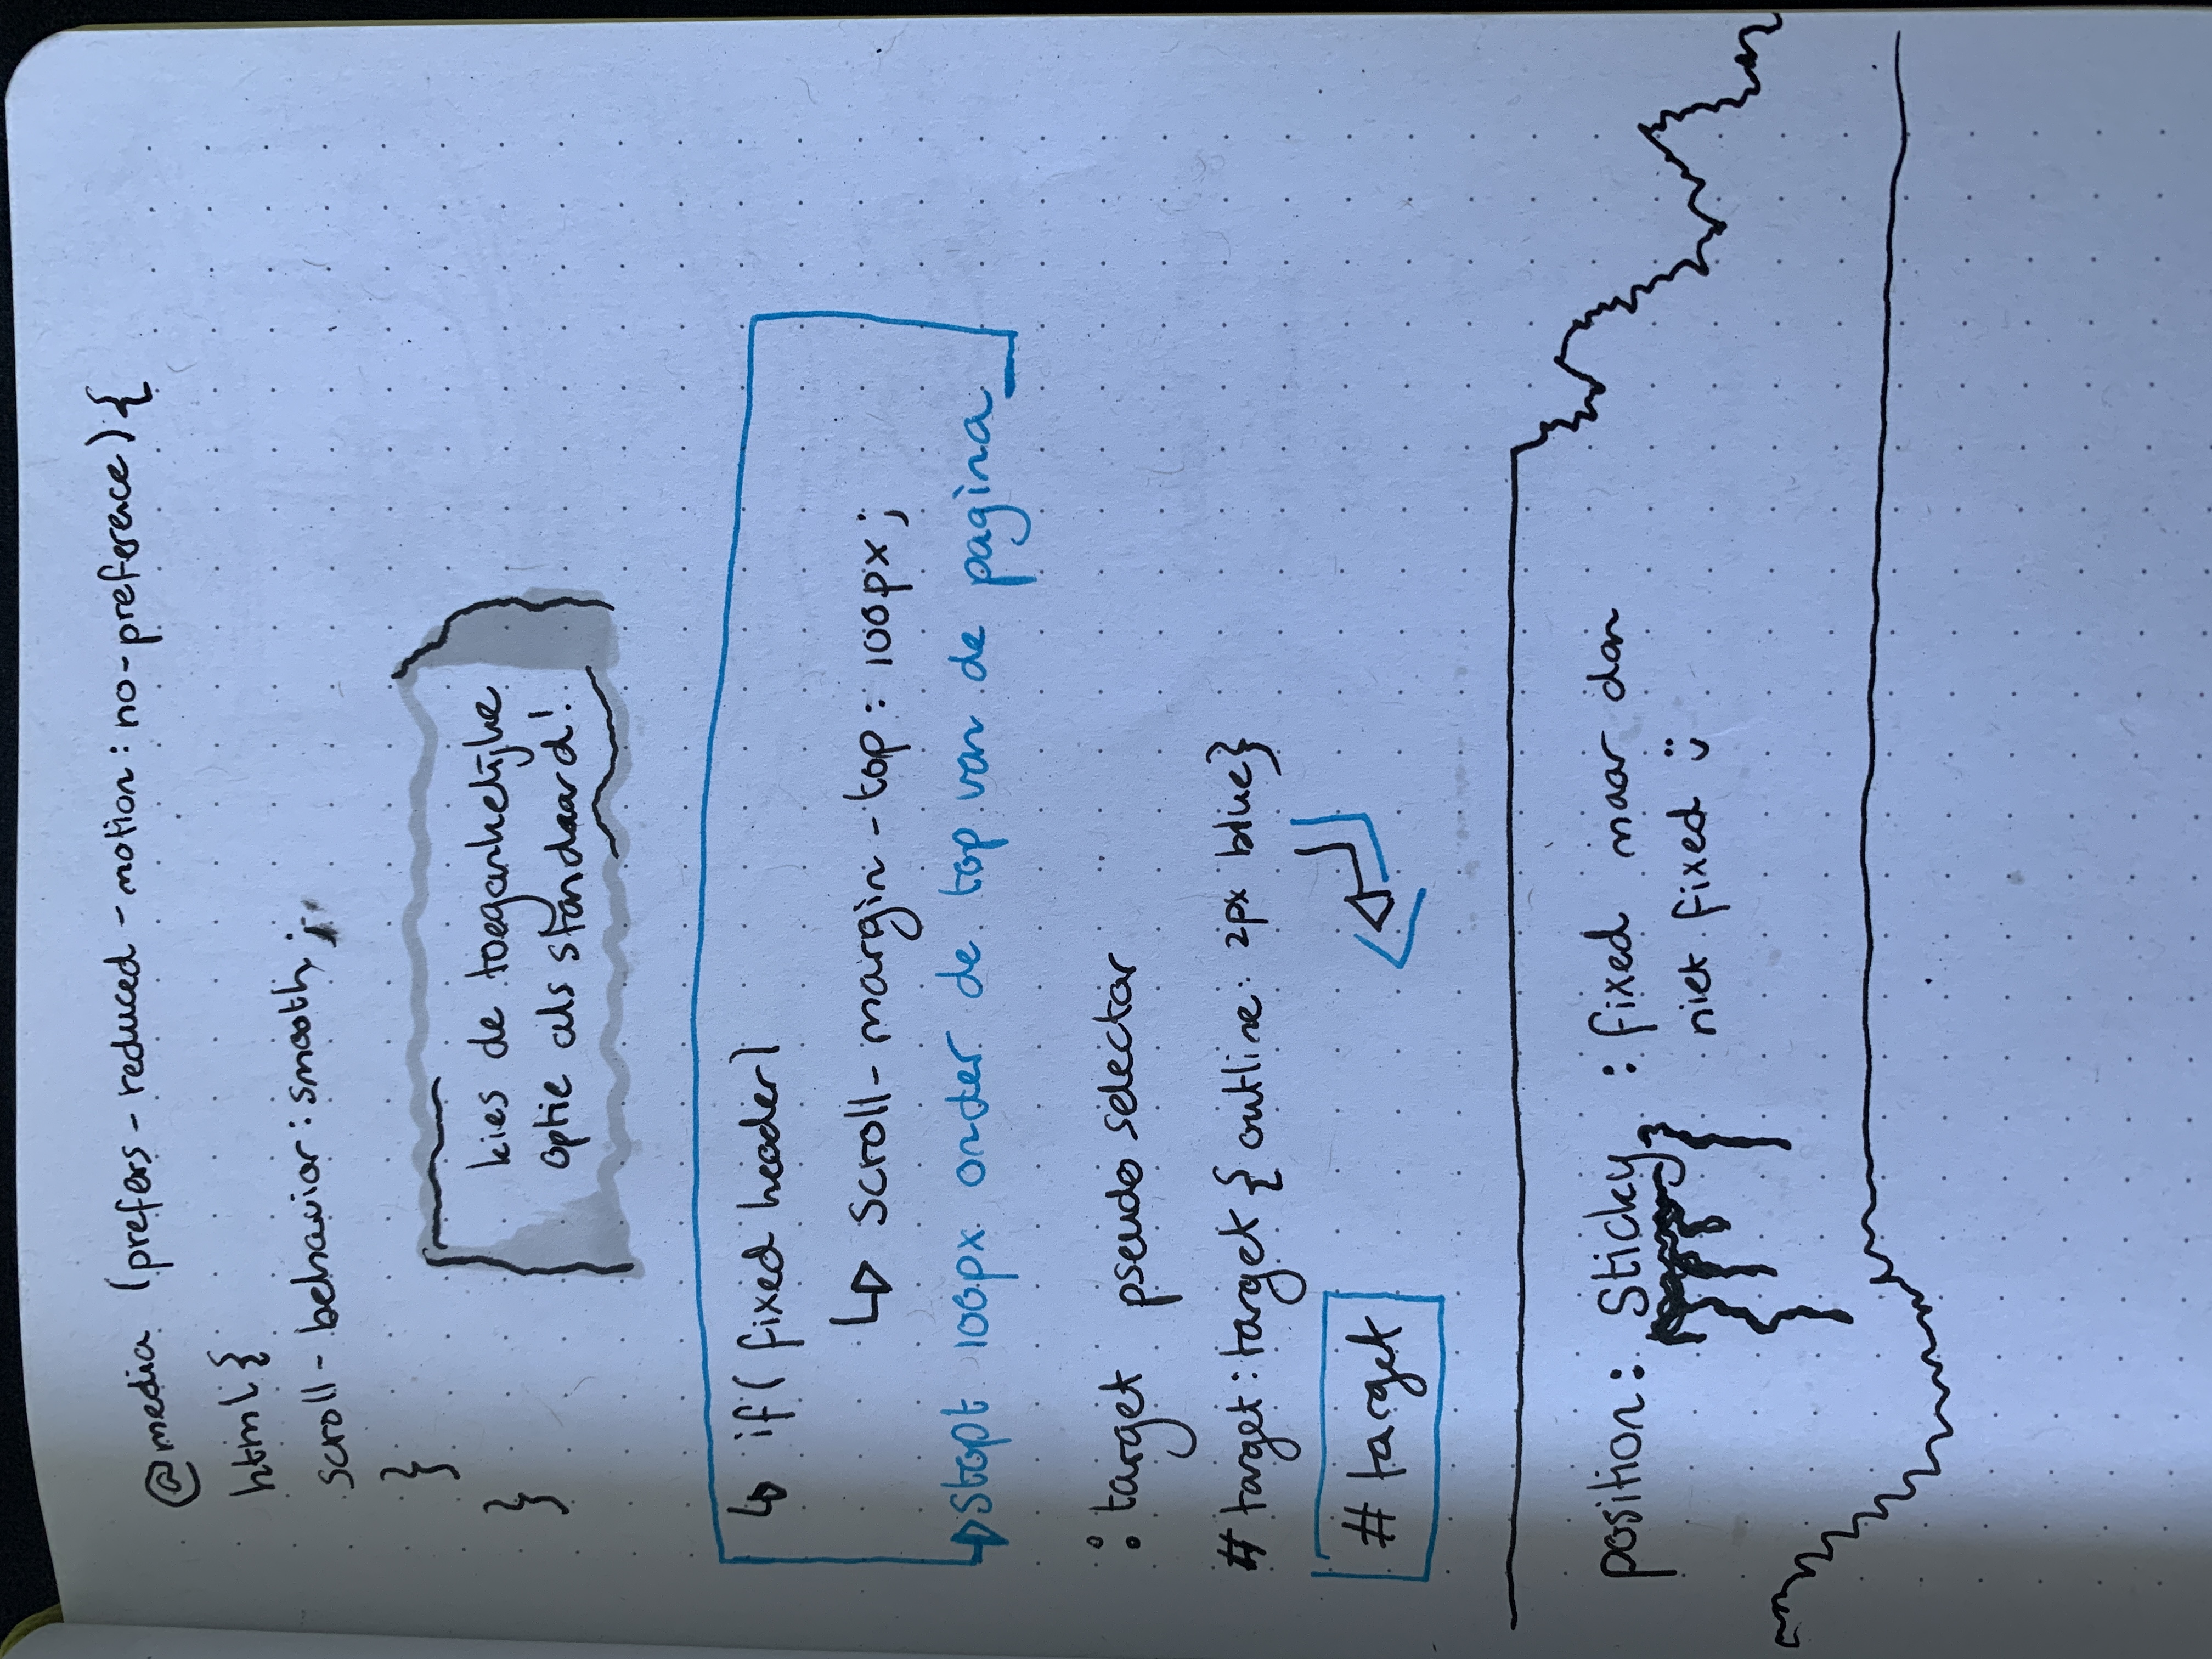 @media (prefers-reduced-motion: no-preference){
html{
scroll-behavior: smooth;
}
}
kies de toegankelijke
optie als standaard!
if( fixed header)
scroll-margin-top: 100px;
stopt 100px onder de top van de pagina
:target pseudo selector
#target:target { outline: 2px blue}
#target
position: sticky : fixed maar dan
niet fixed ü